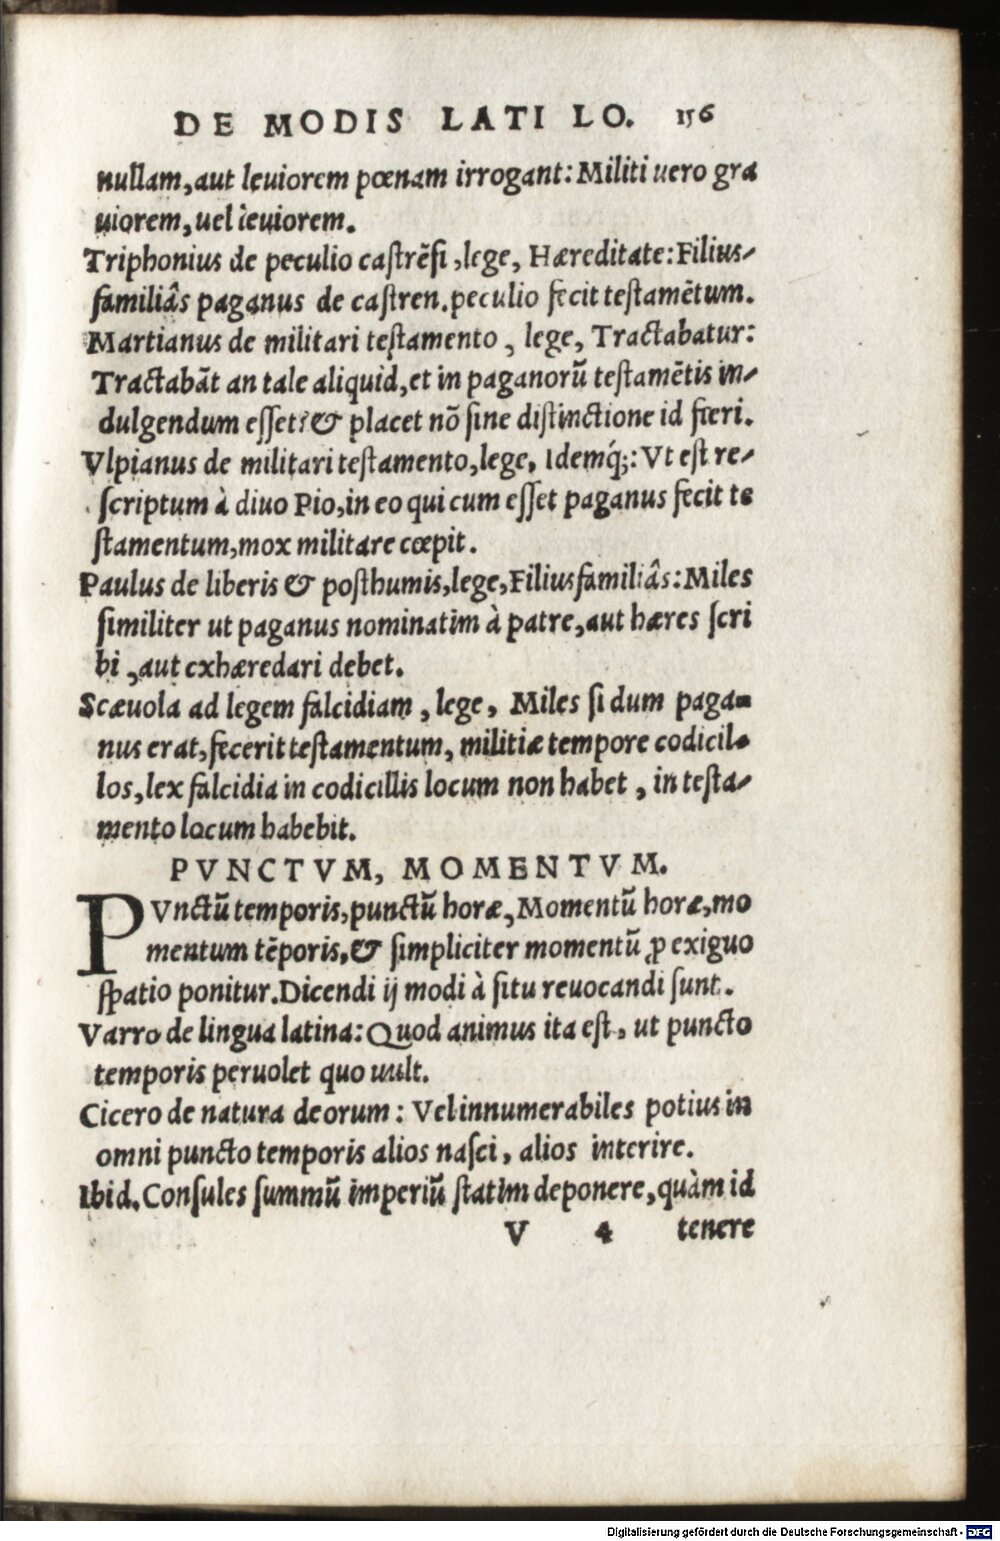 DE MODIS LATI LO. 156
nullam, aut leuiorem pœnam irrogant: Militi uero gra
uiorem, uel leuiorem.
Triphonius de peculio castrẽsi, lege, Hæreditate: Filius-
familiâs paganus de castren. peculio fecit testamẽtum.
Martianus de militari testamento, lege, Tractabatur:
Tractabãt an tale aliquid, et in paganorũ testamẽtis in-
dulgendum esset? & placet nõ sine distinctione id fieri.
Vlpianus de militari testamento, lege, Idemq́;: Vt est re-
scriptum à diuo Pio, in eo qui cum esset paganus fecit te
stamentum, mox militare cœpit.
Paulus de liberis & posthumis, lege, Filiusfamiliâs: Miles
similiter ut paganus nominatim à patre, aut hæres scri
bi, aut exhæredari debet.
Scæuola ad legem falcidiam, lege, Miles si dum paga-
nus erat, fecerit testamentum, militiæ tempore codicil-
los, lex falcidia in codicillis locum non habet, in testa-
mento locum habebit.
PVNCTVM, MOMENTVM.
PVnctũ temporis, punctũ horæ, Momentũ horæ, mo
mentum tẽporis, & simpliciter momentũ ꝓ exiguo
spatio ponitur. Dicendi ij modi à situ reuocandi sunt.
Varro de lingua latina: Quod animus ita est, ut puncto
temporis peruolet quo uult.
Cicero de natura deorum: Vel innumerabiles potius in
omni puncto temporis alios nasci, alios interire.
Ibid. Consules summũ imperiũ statim deponere, quàm id
V 4 tenere
Digitalisierung gefördert durch die Deutsche Forschungsgemeinschaft - DFG